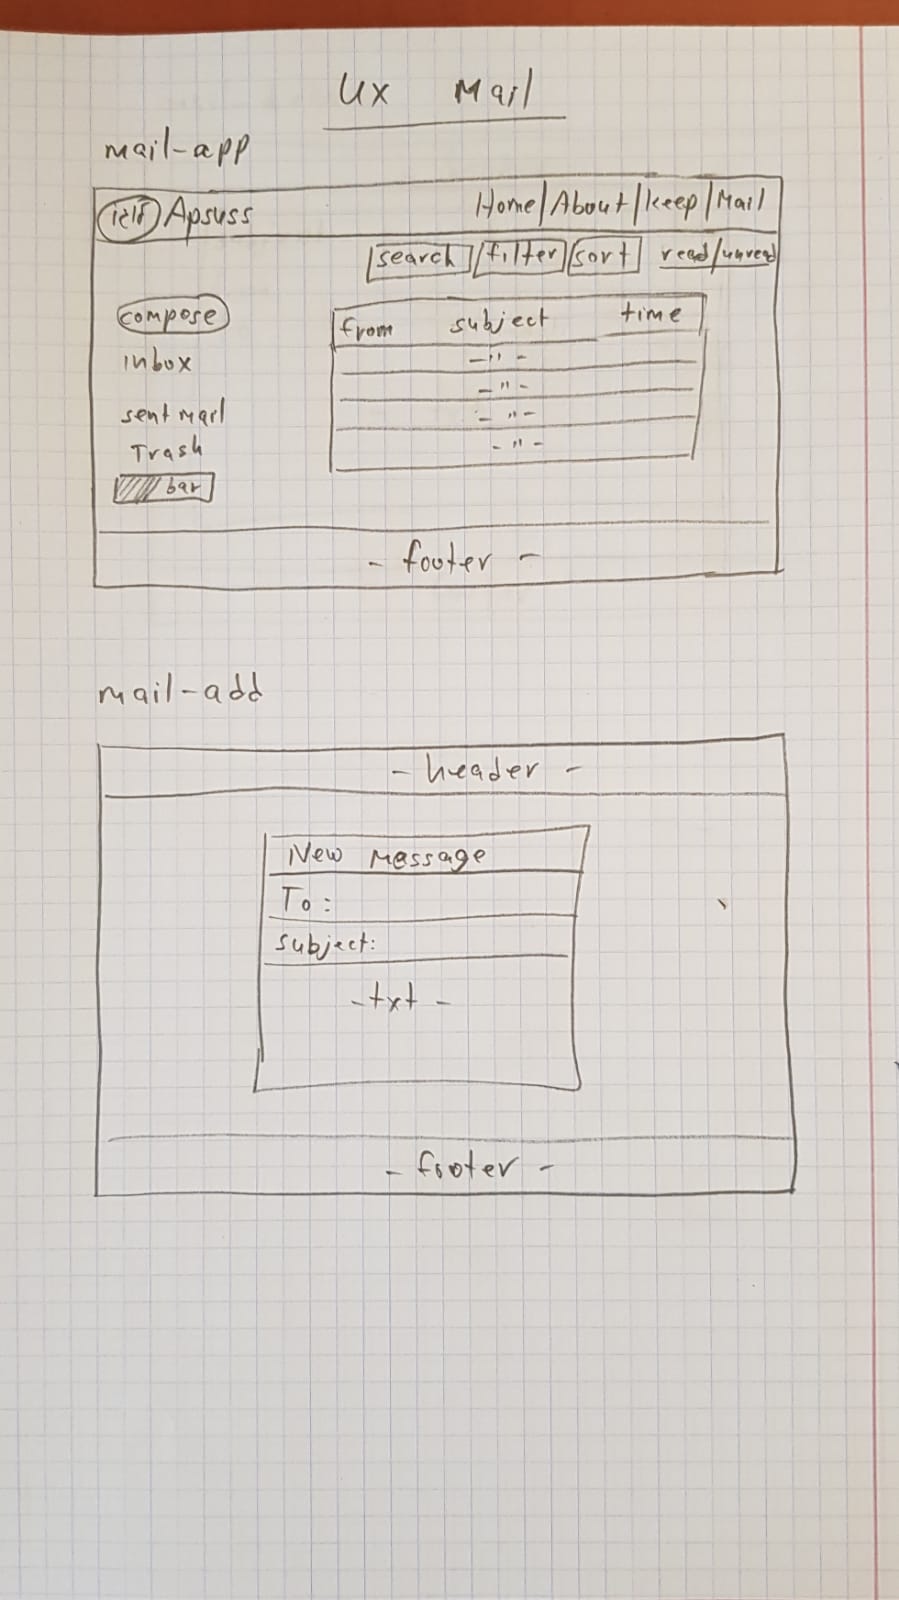 UX Mail
mail-app
לוגו Apsuss Home/About/keep/Mail
search filter sort read/unread
compose
inbox
sent mail
Trash
bar
from subject time
-"-
-"-
-"-
-"-
- footer -
mail-add
- header -
New message
To:
subject:
- txt -
- footer -